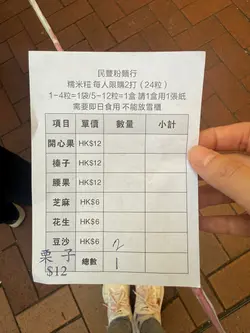 民豐粉麵行
糯米糍 每人限購2打（24粒）
1-4粒=1袋/5-12粒=1盒 請1盒用1張紙
需要即日食用 不能放雪櫃
項目 單價 數量 小計
開心果 HK$12
榛子 HK$12
腰果 HK$12
芝麻 HK$6
花生 HK$6
豆沙 HK$6 2
栗子 $12 總數 1